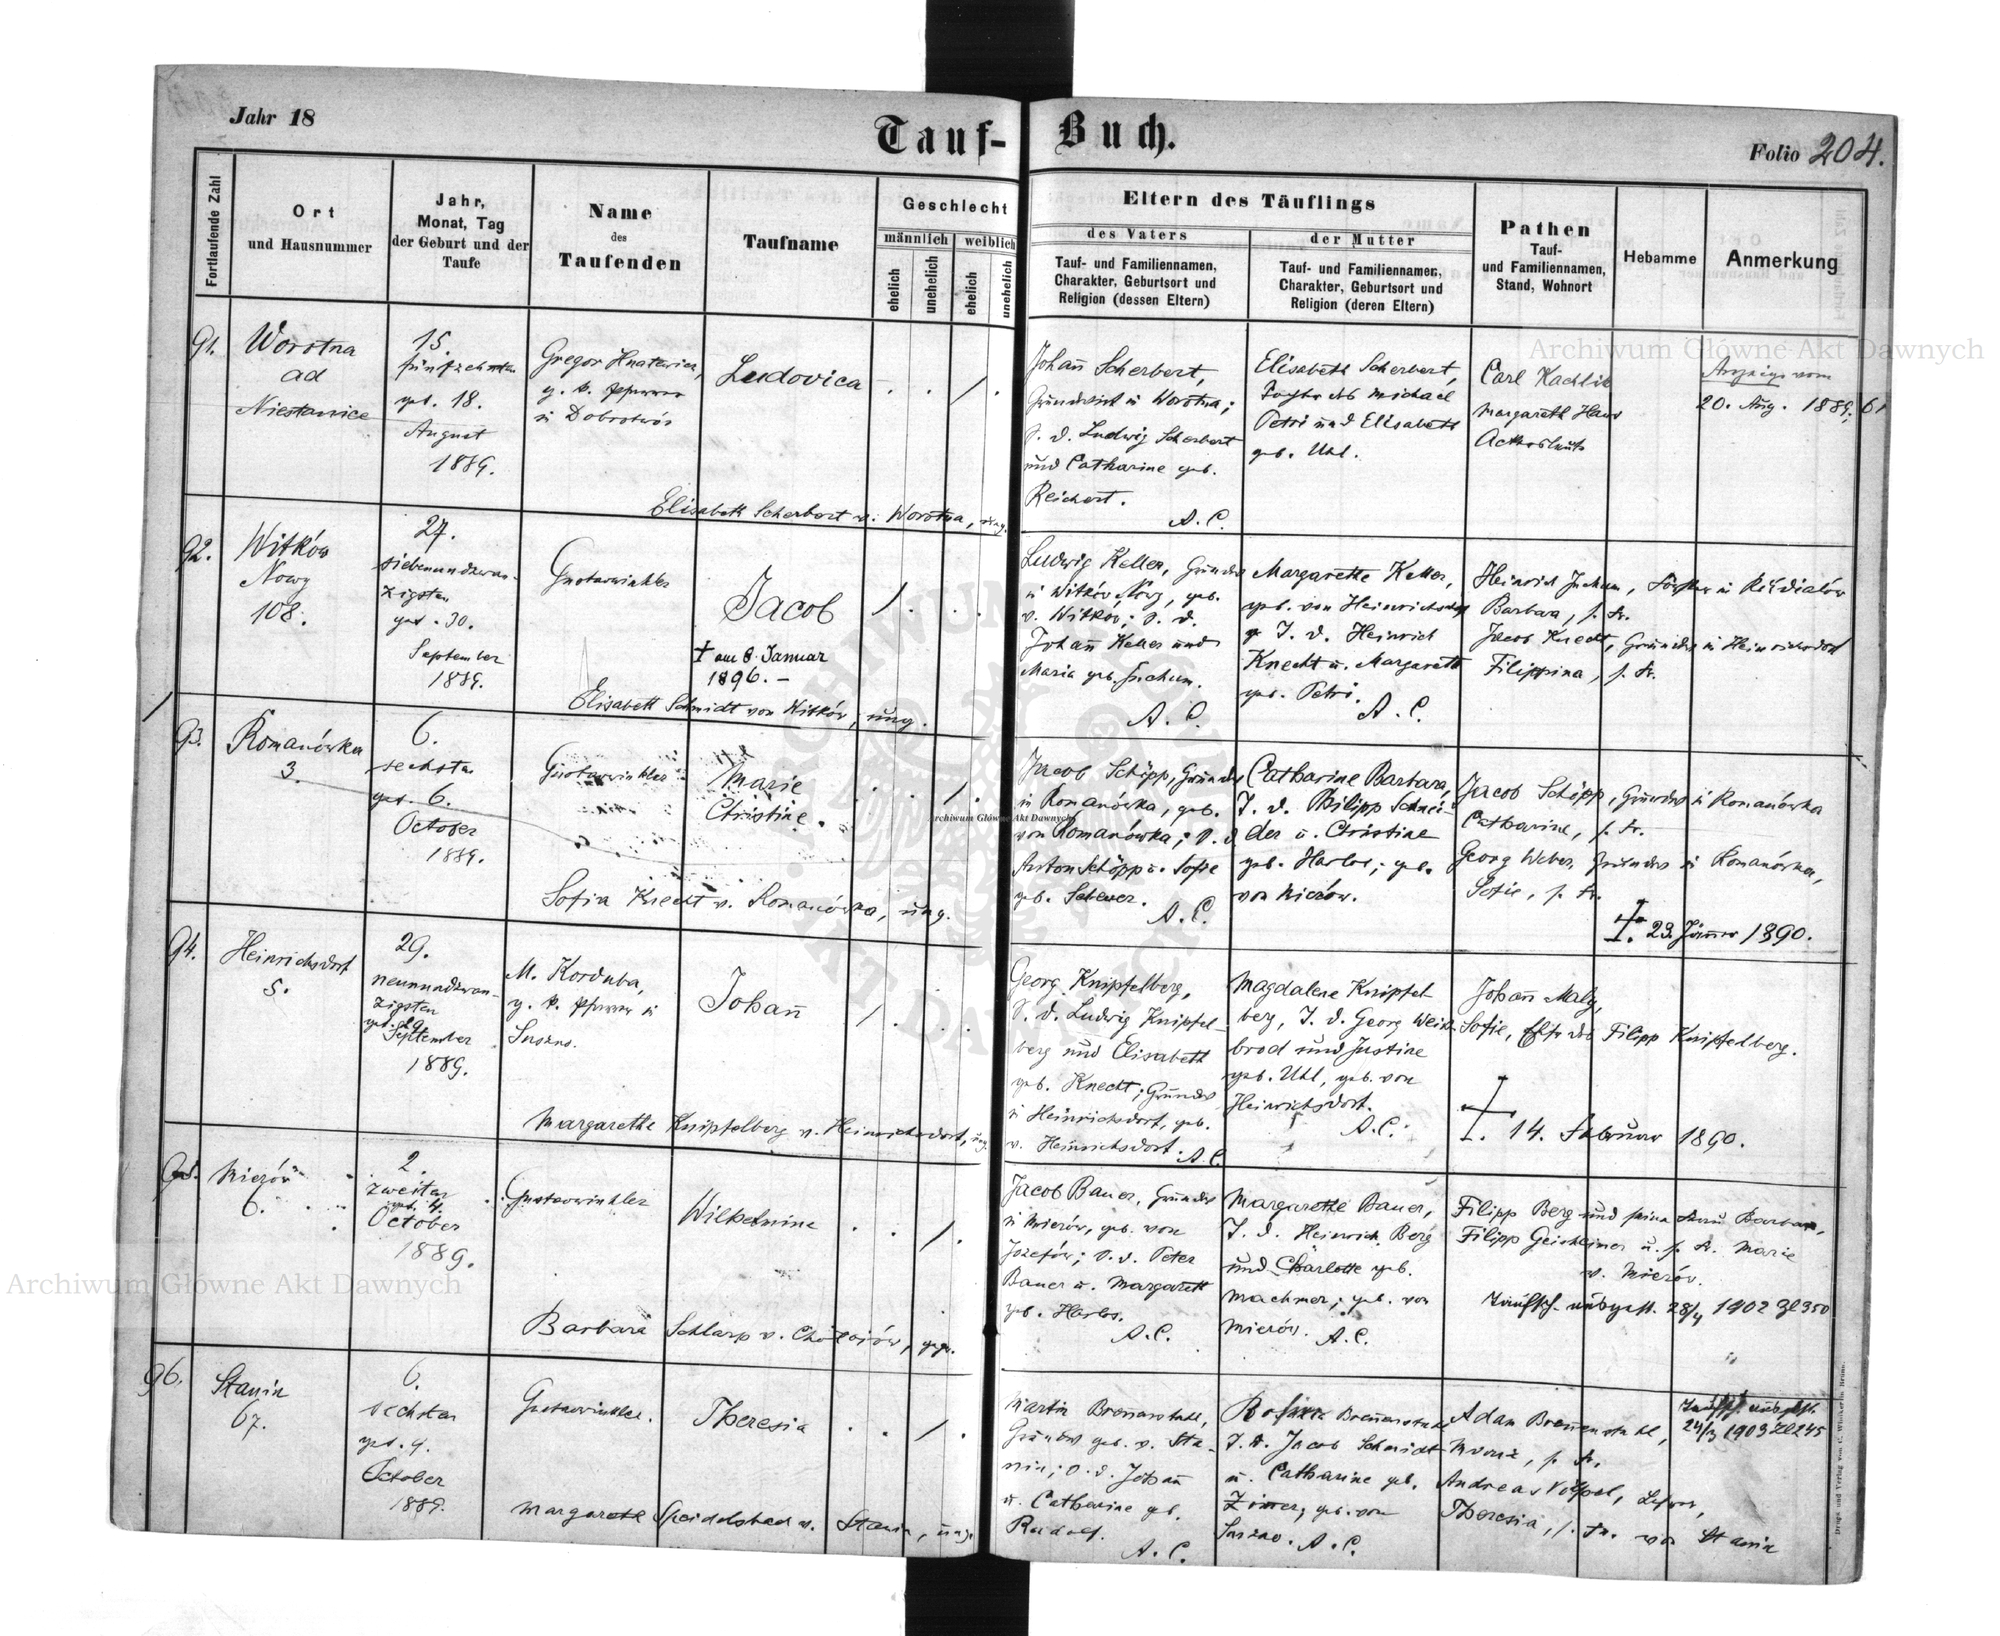 Jahr 18
Tauf-Buch.
Folio 204.
Fortlaufende Zahl
Ort
und Hausnummer
Jahr,
Monat, Tag
der Geburt und der
Taufe
Name
des
Taufenden
Taufname
Geschlecht
männlich
weiblich
ehelich
unehelich
ehelich
unehelich
Eltern des Täuflings
des Vaters
Tauf- und Familiennamen,
Charakter, Geburtsort und
Religion (dessen Eltern)
der Mutter
Tauf- und Familiennamen,
Charakter, Geburtsort und
Religion (deren Eltern)
Pathen
Tauf-
und Familiennamen,
Stand, Wohnort
Hebamme
Anmerkung
91.
Worotna
ad
Niestanice
15.
fünfzehnten
get. 18.
August
1889.
Gregor Hnatewicz,
g. k. Pfarrer
in Dobrotwór
Ludovica
Elisabeth Scherbert v. Worotna, ung.
Johañ Scherbert,
Grundwirt in Worotna;
S. d. Ludwig Scherbert
und Catharine geb.
Reichert.
A. C.
Elisabeth Scherbert,
Tochter des Michael
Petri und Elisabeth
geb. Uhl.
Carl Kachlik
Margareth Haus
Ackersleute
Anzeige vom
20. Aug. 1889, 61
92.
Witków
Nowy
108.
27.
siebenundzwan-
zigsten
get. 30.
September
1889.
Gustav
Jacob
† am 8. Januar
1896. –
Elisabeth Schmidt von Witków, ung.
Ludwig Keller, Grundw
in Witków Nowy, geb.
v. Witków; S. d.
Johañ Keller und
Maria geb. Juchum.
A. C.
Margarethe Keller,
geb. von Heinrichsdorf
T. d. Heinrich
Knecht u. Margareth
geb. Petri.
A. C.
Heinrich Juchum, Förster in
Barbara, s. Fr.
Jacob Knecht, Grundw in Heinrichsdorf
Filippina, s. Fr.
93.
Romanówka
3.
6.
sechsten
get. 6.
October
1889.
Marie
Christine.
Sofia Knecht v. Romanówka, ung.
Jacob Schöpp, Grundw
in Romanówka, geb.
von Romanówka; S. d.
Anton Schöpp u. Sofie
geb. Scherer.
A. C.
Catharine Barbara,
T. d. Philipp Schnei-
der u. Christine
geb. Harlos; geb.
von Mierów.
Jacob Schöpp, Grundw in Romanówka
Catharine, s. Fr.
Georg Weber, Grundw in Romanówka,
Sofie, s. Fr.
†. 23. Jänner 1890.
94.
Heinrichsdorf
5.
29.
neunundzwan-
zigsten
get. 29.
September
1889.
M. Korduba,
g. k. Pfarrer in
Suszno.
Johañ
Margarethe Knipfelberg v. Heinrichsdorf, ung.
Georg Knipfelberg,
S. d. Ludwig Knipfel-
berg und Elisabeth
geb. Knecht; Grundw
in Heinrichsdorf, geb.
v. Heinrichsdorf. A. C.
Magdalene Knipfel-
berg, T. d. Georg Weiß-
brod und Justine
geb. Uhl, geb. von
Heinrichsdorf.
A. C.
Johañ Maly,
Sofie, des Filipp Knipfelberg.
†. 14. Februar 1890.
95.
Mierów
6.
2.
zweiten
get. 4.
October
1889.
Wilhelmine
Barbara Schlarp v. Chołojów, gepr.
Jacob Bauer, Grundw
in Mierów, geb. von
Józefów; S. d. Peter
Bauer u. Margareth
geb. Harlos.
A. C.
Margarethe Bauer,
T. d. Heinrich Berg
und Charlotte geb.
Machmer; geb. von
Mierów. A. C.
Filipp Berg und seine Frau Barbara,
Filipp u. s. Fr. Marie
v. Mierów.
Taufsch. ausgest. 28/4 1902 Zl 350
96.
Stanin
67.
6.
sechsten
get. 9.
October
1889.
Theresia
Margareth v. Stanin, ung.
Martin Breñenstuhl,
Grundw geb. v. Sta-
nin; S. d. Johañ
u. Catharine geb.
Rudolf.
A. C.
Rosina Breñenstuhl
T. d. Jacob Schmidt
u. Catharine geb.
Zimer, geb. von
Suszno. A. C.
Adam Breñenstuhl,
Marie, s. Fr.
Andreas Völpel, Lehrer,
Theresia, s. Fr. von Stanin
Taufsch. ausgest.
24/3 1903 Zl 245
Druck und Verlag von C. Winiker in Brünn.
Archiwum Główne Akt Dawnych
Archiwum Główne Akt Dawnych
Archiwum Główne Akt Dawnych